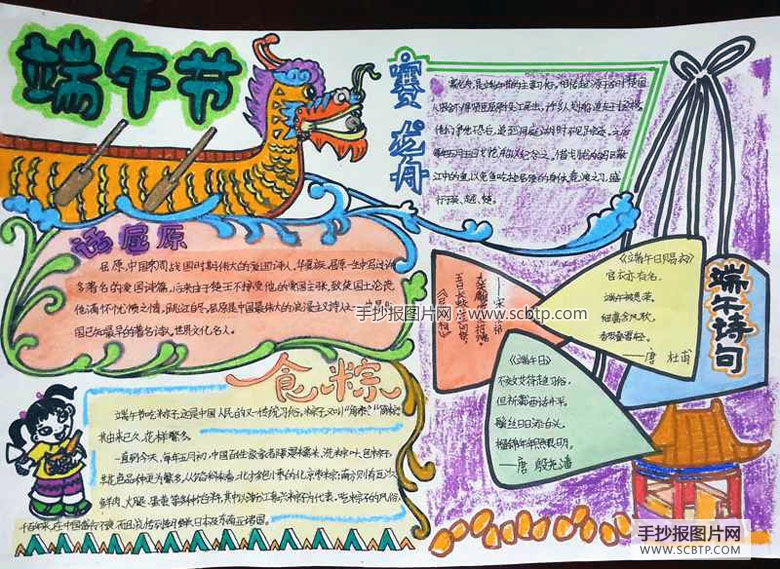 端午节
赛龙舟
赛龙舟,是端午节的主要习俗。相传起源于古时楚国
人因舍不得贤臣屈原投江死去,许多人划船追赶拯救。
他们争先恐后,追至洞庭湖时不见踪迹。之后
每年五月五日划龙舟以纪念之。借划龙舟驱散
江中的鱼,以免鱼吃掉屈原的身体。竞渡之习,盛
行于吴、越、楚。
话屈原
屈原,中国东周战国时期伟大的爱国诗人,
多著名的爱国诗篇,后来由于楚王不接受他的爱国主张,致使国土沦丧
他满怀忧愤之情,跳江自尽。屈原是中国最伟大的浪漫主义诗人之一,也是我
国已知最早的著名诗人,世界文化名人。
食粽
端午节吃粽子,这是中国人民的又一传统习俗。粽子,又叫“角黍”“筒粽”
其由来已久,花样繁多。
一直到今天,每年五月初,中国百姓家家都要浸糯米、洗粽叶、包粽子,
其花色品种更为繁多。从馅料来看,北方多包小枣的北京枣粽,南方则有豆沙、
鲜肉、火腿、蛋黄等多种馅料,其中以浙江嘉兴粽子为代表。吃粽子的风俗,
千百年来,在中国盛行不衰,而且流传到朝鲜、日本及东南亚诸国。
端午诗句
《端午日赐衣》
宫衣亦有名,
端午被恩荣。
细葛含风软,
香罗叠雪轻。
——唐 杜甫
《端午日》
不效艾符趋习俗,
但祈蒲酒话升平。
鬓丝日日添白头,
榴锦年年照眼明。
——唐 殷尧藩
手抄报图片网:www.scbtp.com
手抄报图片网
WWW.SCBTP.COM